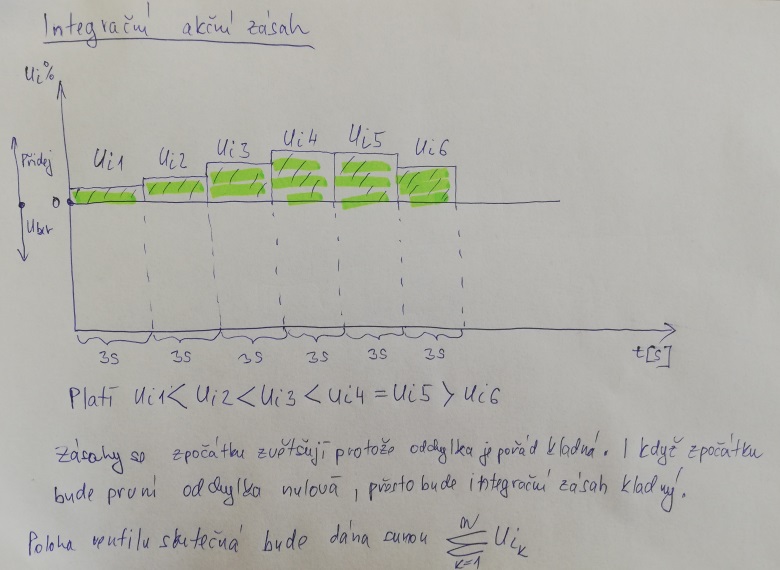 Integrační akční zásah
Ui%
Přidej
Uber
0
Ui1 Ui2 Ui3 Ui4 Ui5 Ui6
3s 3s 3s 3s 3s 3s
t[s]
Platí Ui1 < Ui2 < Ui3 < Ui4 = Ui5 > Ui6
Zásahy se zpočátku zvětšují protože odchylka je pořád kladná. I když zpočátku
bude první odchylka nulová, přesto bude integrační zásah kladný.
Poloha ventilu skutečná bude dána sumou ∑ Uik
N
k=1